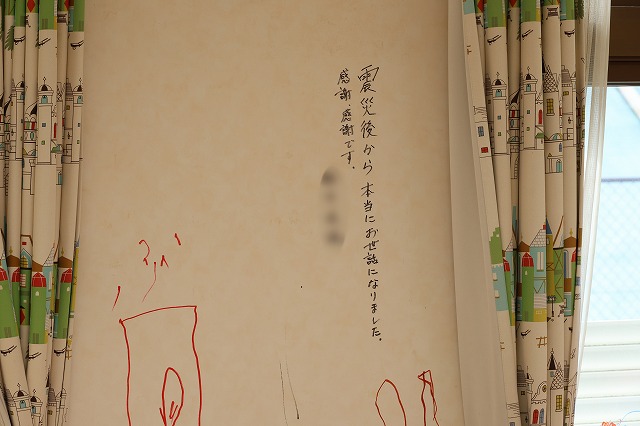 震災後から 本当にお世話になりました。
感謝、感謝です。